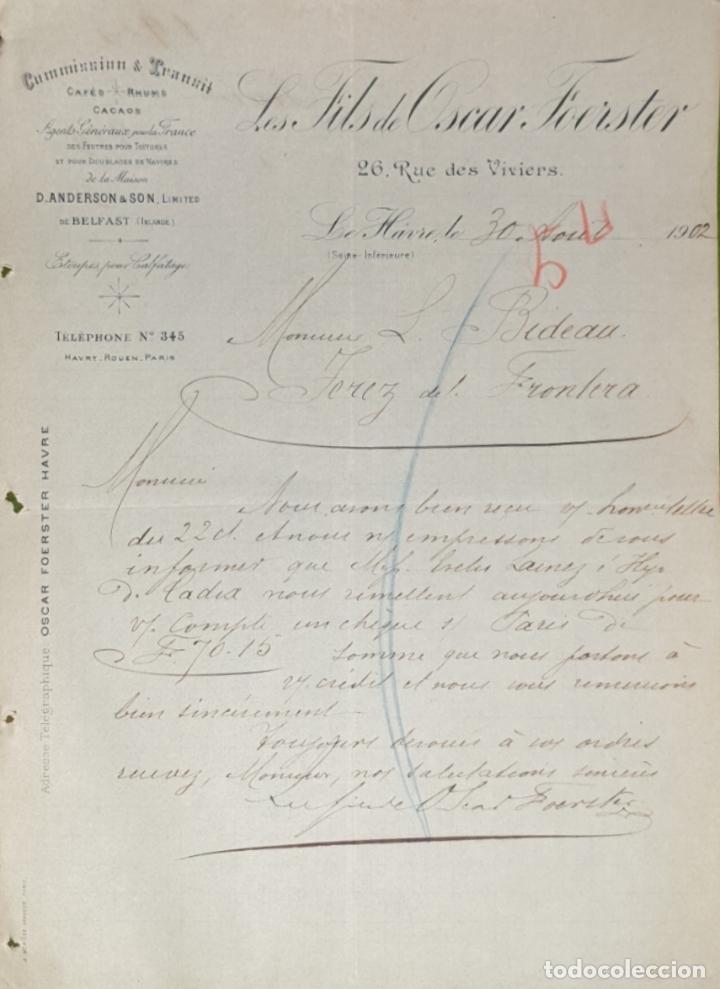 Commission & Transit
CAFÉS - RHUMS
CACAOS
Agents Généraux pour la France
DES FEUTRES POUR TOITURES
ET POUR DOUBLAGES DE NAVIRES
de la Maison
D. ANDERSON & SON, LIMITED
DE BELFAST (IRLANDE)
Etoupes pour Calfatage
TÉLÉPHONE Nº 345
HAVRE, ROUEN, PARIS
Les Fils de Oscar Foerster
26, Rue des Viviers.
Le Hâvre, le 30 Août 1902
(Seine-Inférieure)
Monsieur L. Bideau.
Jerez de l. Frontera
Monsieur
Nous avons bien reçu v/. lettre
du 22 ct. et nous n/ empressons de vous
informer que Lainez é Hijo
d. Cadix nous remettent aujourdhui pour
v/. Compte un chèque s/ Paris de
F. 70.15 somme que nous portons à
v/. crédit et nous vous remercions
bien sincèrement
Toujours devoués à vos ordres
recevez, Monsieur, nos salutations sincères
Les fils de Oscar Foerster
Adresse Télégraphique: OSCAR FOERSTER HAVRE
todocoleccion.net